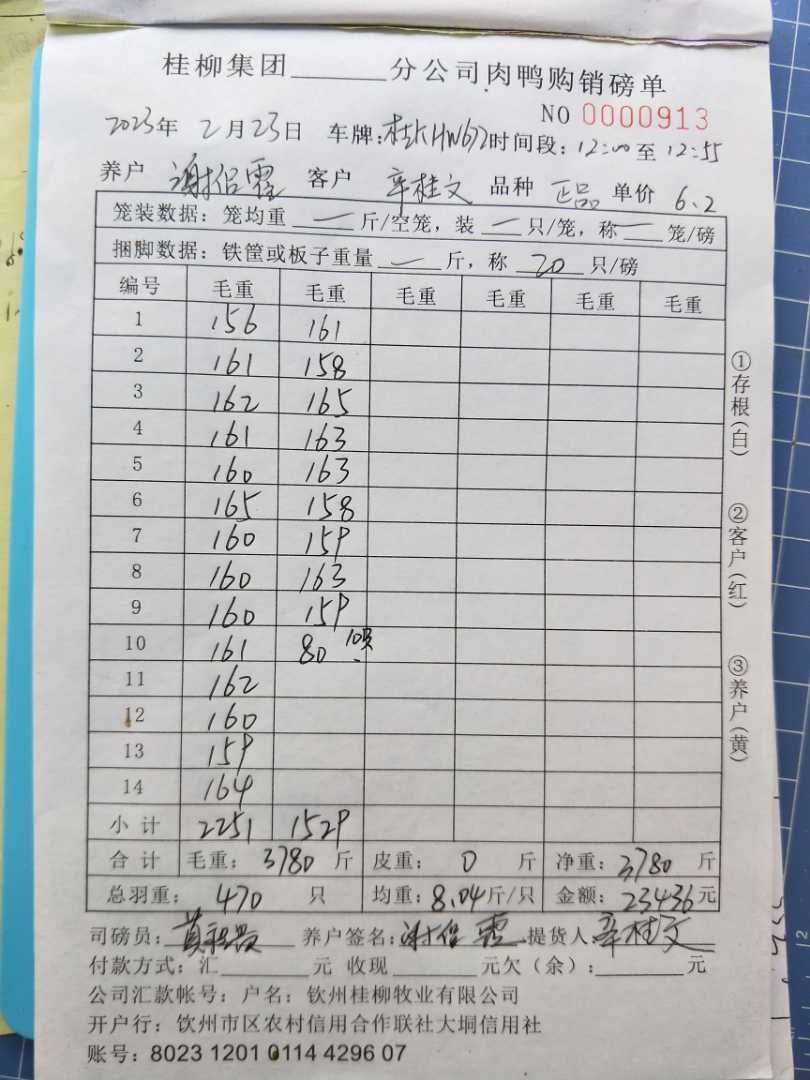 桂柳集团______分公司肉鸭购销磅单
NO 0000913
2023年 2月23日 车牌:桂KHW672 时间段: 12:00 至 12:55
养户 谢侣霞 客户 辛桂文 品种 正品 单价 6.2
笼装数据: 笼均重 — 斤/空笼, 装 — 只/笼, 称 — 笼/磅
捆脚数据: 铁筐或板子重量 — 斤, 称 20 只/磅
编号 毛重 毛重 毛重 毛重 毛重 毛重
1 156 161
2 161 158
3 162 165
4 161 163
5 160 163
6 165 158
7 160 159
8 160 163
9 160 159
10 161 80 10只
11 162
12 160
13 159
14 164
小计 2251 1529
合计 毛重: 3780 斤 皮重: 0 斤 净重: 3780 斤
总羽重: 470 只 均重: 8.04斤/只 金额: 23436元
司磅员: 养户签名: 谢侣霞 提货人 辛桂文
付款方式: 汇______元 收现______元欠(余):______元
公司汇款帐号: 户名: 钦州桂柳牧业有限公司
开户行: 钦州市区农村信用合作联社大垌信用社
账号: 8023 1201 0114 4296 07
①存根(白)
②客户(红)
③养户(黄)